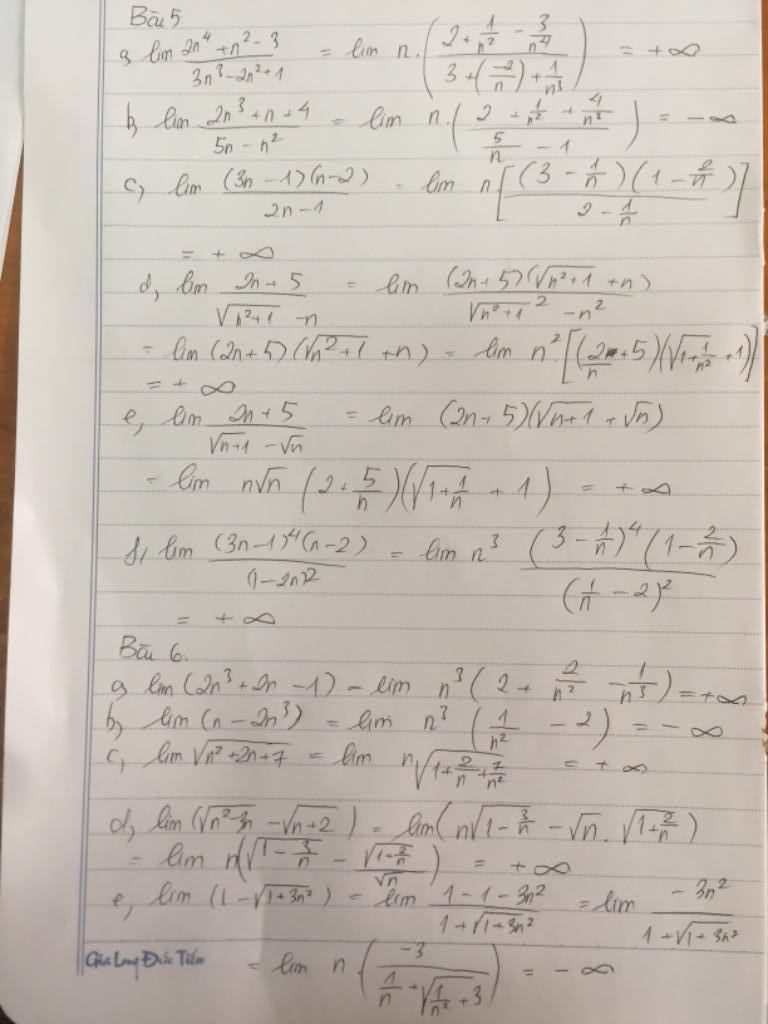 Bài 5
a, lim (2n⁴ + n² - 3)/(3n³ - 2n² + 1) = lim n.((2 + 1/n² - 3/n⁴)/(3 + (-2/n) + 1/n³)) = +∞
b, lim (2n³ + n + 4)/(5n - n²) = lim n.((2 + 1/n² + 4/n³)/(5/n - 1)) = -∞
c, lim ((3n - 1)(n - 2))/(2n - 1) = lim n[((3 - 1/n)(1 - 2/n))/(2 - 1/n)]
= +∞
d, lim (2n + 5)/(√(n² + 1) - n) = lim ((2n + 5)(√(n² + 1) + n))/(√(n² + 1)² - n²)
= lim (2n + 5)(√(n² + 1) + n) = lim n².[(2 + 5/n)(√(1 + 1/n²) + 1)]
= +∞
e, lim (2n + 5)/(√(n + 1) - √n) = lim (2n + 5)(√(n + 1) + √n)
= lim n√n (2 + 5/n)(√(1 + 1/n) + 1) = +∞
f, lim ((3n - 1)⁴(n - 2))/(1 - 2n)² = lim n³ ((3 - 1/n)⁴(1 - 2/n))/(1/n - 2)²
= +∞
Bài 6.
a, lim (2n³ + 2n - 1) = lim n³(2 + 2/n² - 1/n³) = +∞
b, lim (n - 2n³) = lim n³(1/n² - 2) = -∞
c, lim √(n² + 2n + 7) = lim n√(1 + 2/n + 7/n²) = +∞
d, lim (√(n² - 3n) - √(n + 2)) = lim (n√(1 - 3/n) - √n.√(1 + 2/n))
= lim n(√(1 - 3/n) - √(1 + 2/n)/√n) = +∞
e, lim (1 - √(1 + 3n²)) = lim (1 - 1 - 3n²)/(1 + √(1 + 3n²)) = lim (-3n²)/(1 + √(1 + 3n²))
= lim n.(-3/(1/n + √(1/n² + 3))) = -∞